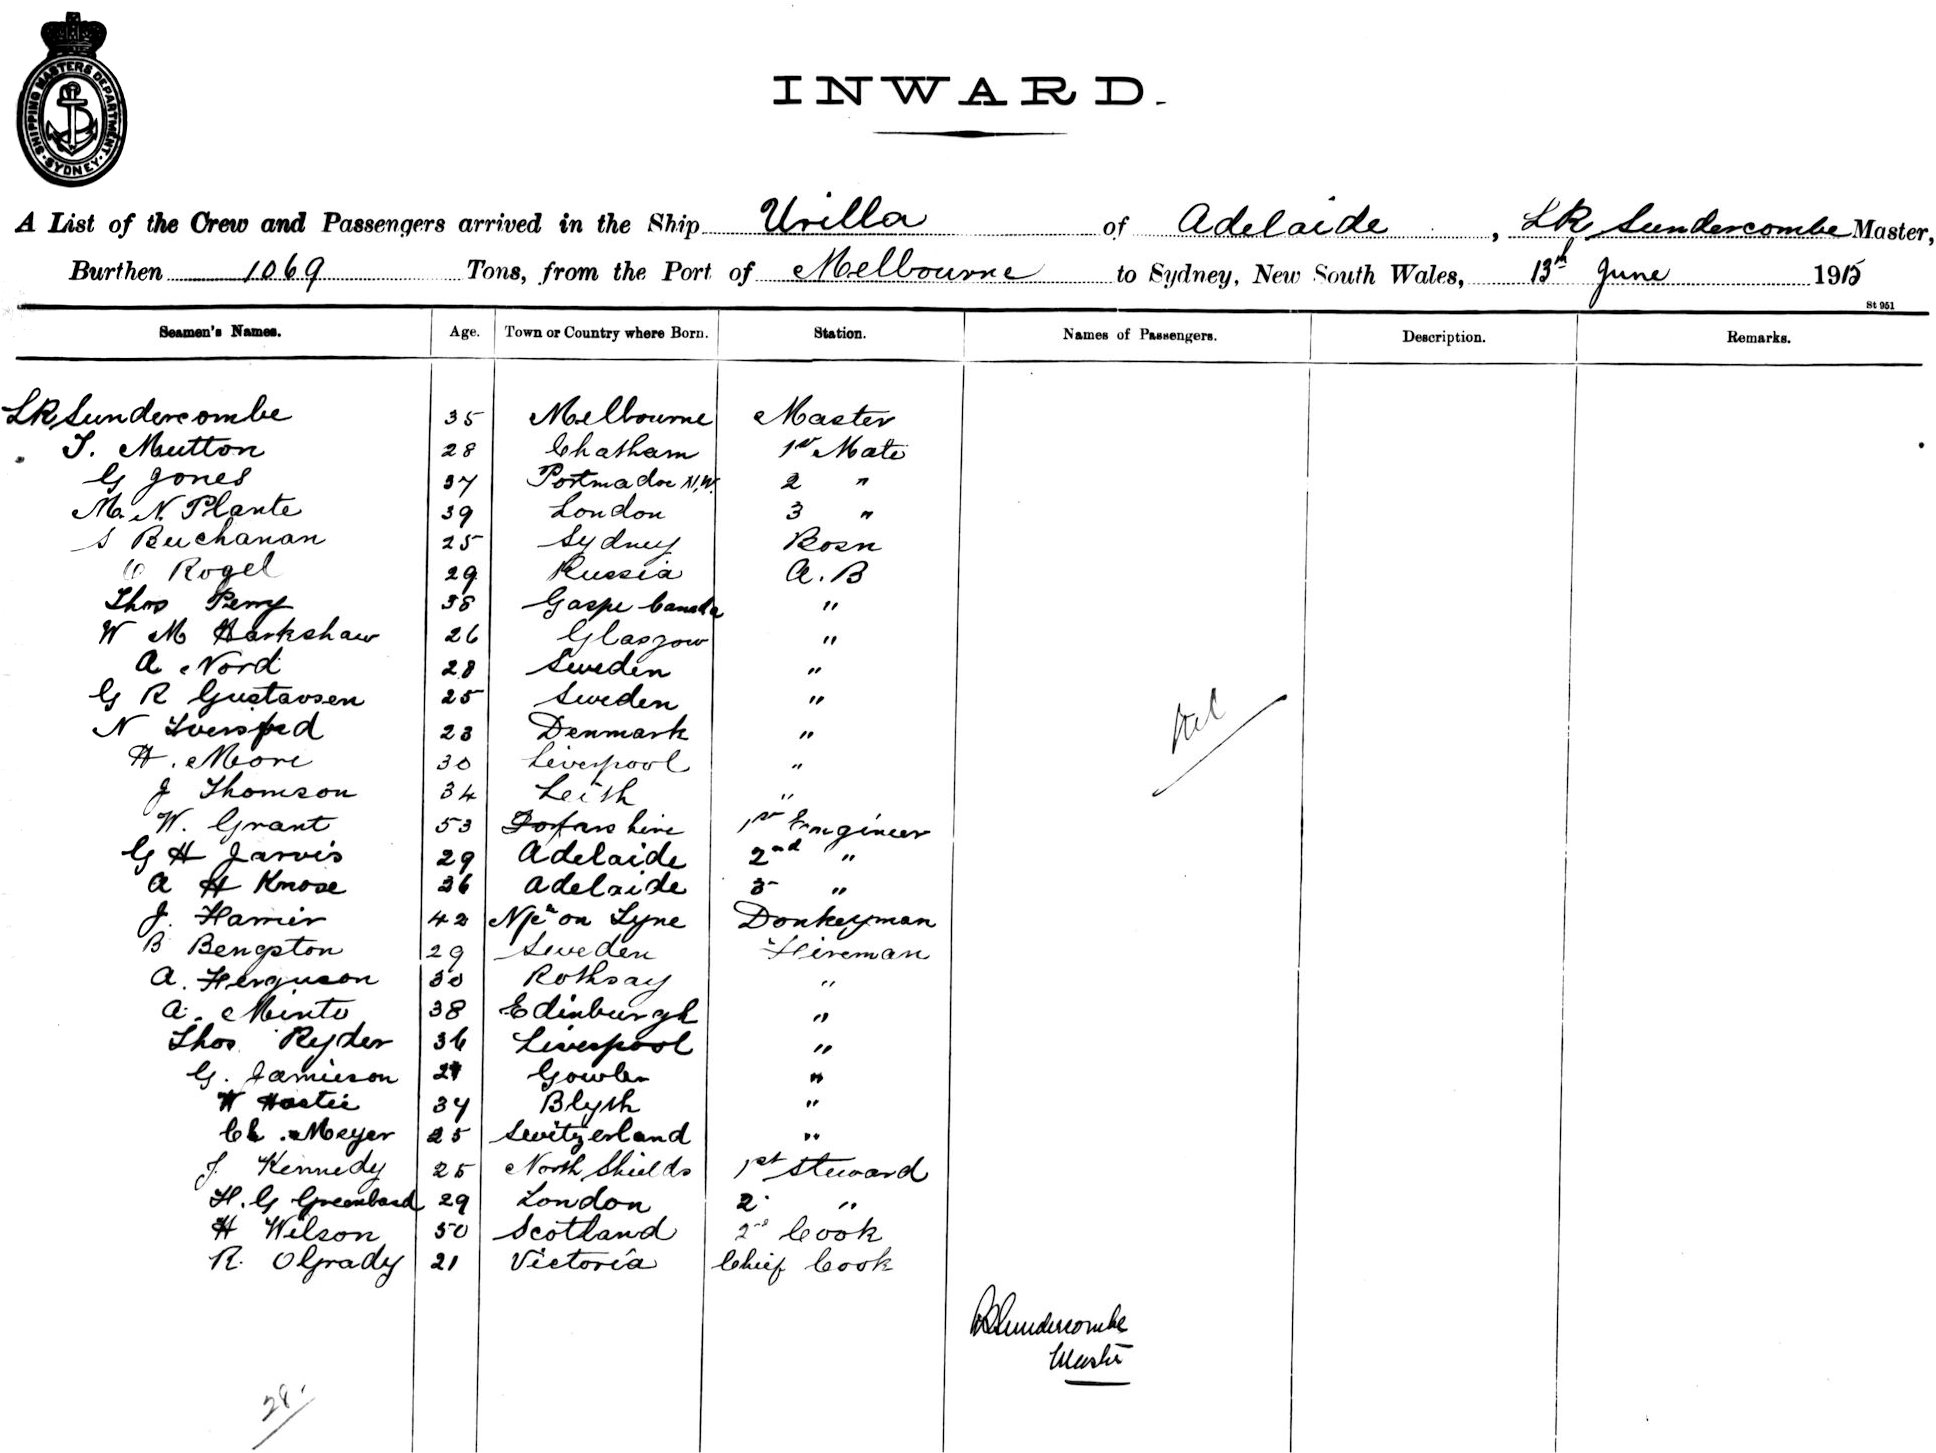 SHIPPING MASTERS DEPARTMENT. SYDNEY.
INWARD.
A List of the Crew and Passengers arrived in the Ship Urilla of Adelaide, L R Sundercombe Master,
Burthen 1069 Tons, from the Port of Melbourne to Sydney, New South Wales, 13th June 1915
St 951
Seamen's Names. Age. Town or Country where Born. Station. Names of Passengers. Description. Remarks.
L R Sundercombe 35 Melbourne Master
T. Mutton 28 Chatham 1st Mate
G Jones 37 Portmadoc N.W. 2 "
M. N. Plante 39 London 3 "
S Buchanan 25 Sydney Bosn
Rogel 29 Russia A.B
Thos Perry 38 Gaspe Canada "
W M Harkshaw 26 Glasgow "
A Nord 28 Sweden "
G R Gustavsen 25 Sweden "
N 23 Denmark "
H. Moore 30 Liverpool "
J Thomson 34 Leith "
W. Grant 53 Forfarshire 1st Engineer
G H Jarvis 29 Adelaide 2nd "
A H 36 Adelaide 3 "
J. Harrier 42 on Tyne Donkeyman
B Bengston 29 Sweden Fireman
A. Ferguson 30 Rothsay "
A. Minto 38 Edinburgh "
Thos Ryder 36 Liverpool "
G. Jamieson "
W Hastie 37 Blyth "
Ch. Meyer 25 Switzerland "
J Kennedy 25 North Shields 1st Steward
H. G 29 London 2 "
H Wilson 50 Scotland 2nd Cook
R. OGrady 21 Victoria Chief Cook
L R Sundercombe
Master
28